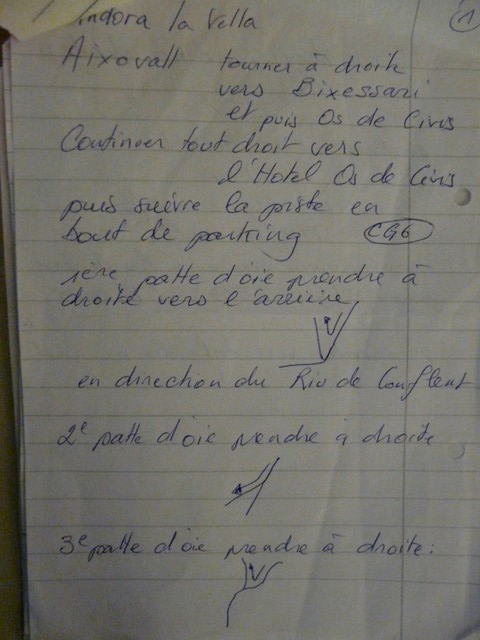 1
Andora la Vella
Aixovall tourner à droite
vers Bixessari
et puis Os de Civis
Continuer tout droit vers
l'Hotel Os de Civis
puis suivre la piste en
bout de parking CG6
1ère patte d'oie prendre à
droite vers l'arrière
en direction du Riu de Conflent
2e patte d'oie prendre à droite
3e patte d'oie prendre à droite: